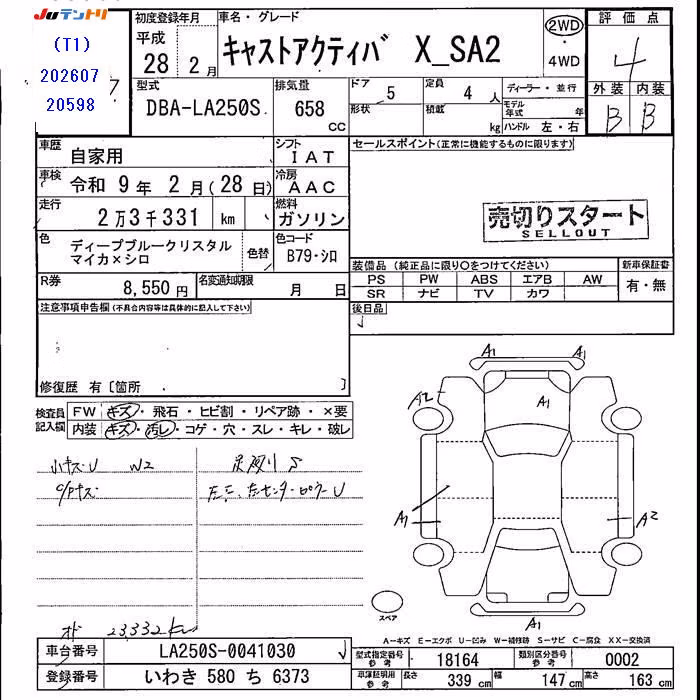 Juテントリ
(T1)
202607
20598
初度登録年月
平成
28 2月
車名・グレード
キャストアクティバ X_SA2
2WD
・
4WD
評価点
4
外装 内装
B B
型式
DBA-LA250S
排気量
658
CC
ドア
5
定員
4 人
形状
積載
kg
ディーラー・並行
モデル年式 年
ハンドル 左・右
車歴
自家用
シフト
IAT
車検
令和 9年 2月(28日)
冷房
AAC
走行
2万3千331 km
燃料
ガソリン
色
ディープブルークリスタル
マイカ×シロ
色替
色コード
B79・シロ
R券
8,550円
名変通知期限
月 日
セールスポイント(正常に機能するものに限ります)
売切りスタート
SELLOUT
装備品(純正品に限り○をつけてください)
PS PW ABS エアB AW
SR ナビ TV カワ
新車保証書
有・無
後日品
注意事項申告欄(不具合内容等は具体的に記入して下さい)
修復歴 有〔箇所 〕
検査員
記入欄
FW キズ・飛石・ヒビ割・リペア跡・×要
内装 キズ・汚レ・コゲ・穴・スレ・キレ・破レ
小キズU W2
S
U
A1
A1
A2
A1
A1
A2
A1
スペア
オド 23,332km
A-キズ E-エクボ U-凹み W-補修跡 S-サビ C-腐食 XX-交換済
車台番号
LA250S-0041030
登録番号
いわき 580 ち 6373
型式指定番号
参考
18164
類別区分番号
参考
0002
車庫証明用
参考
長さ 339 cm
幅 147 cm
高さ 163 cm